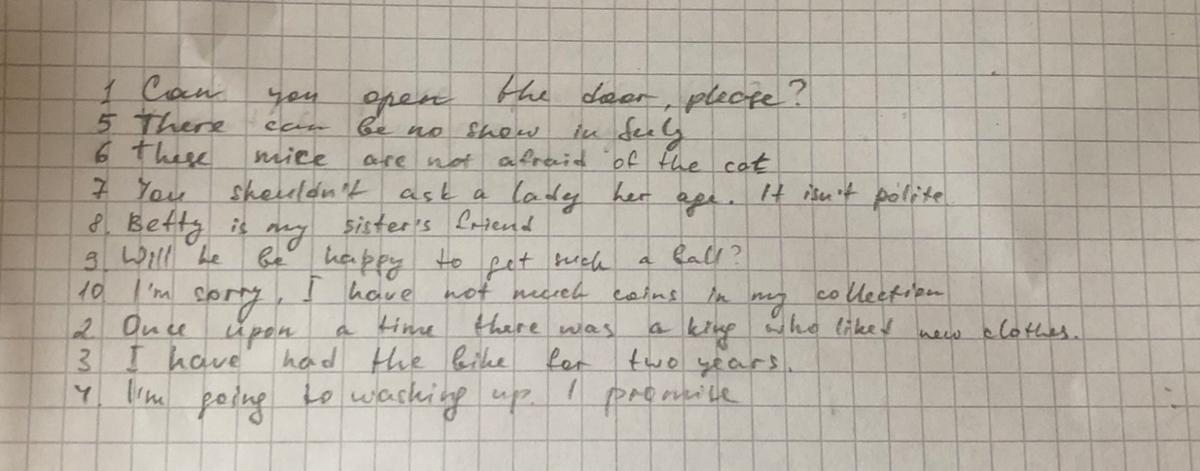 1 Can you open the door, please?
5 There can be no snow in July
6 These mice are not afraid of the cat
7 You shouldn't ask a lady her age. It isn't polite.
8. Betty is my sister's friend
9. Will he be happy to get such a ball?
10 I'm sorry, I have not much coins in my collection
2. Once upon a time there was a king who liked new clothes.
3 I have had the bike for two years.
4. I'm going to washing up. I promise